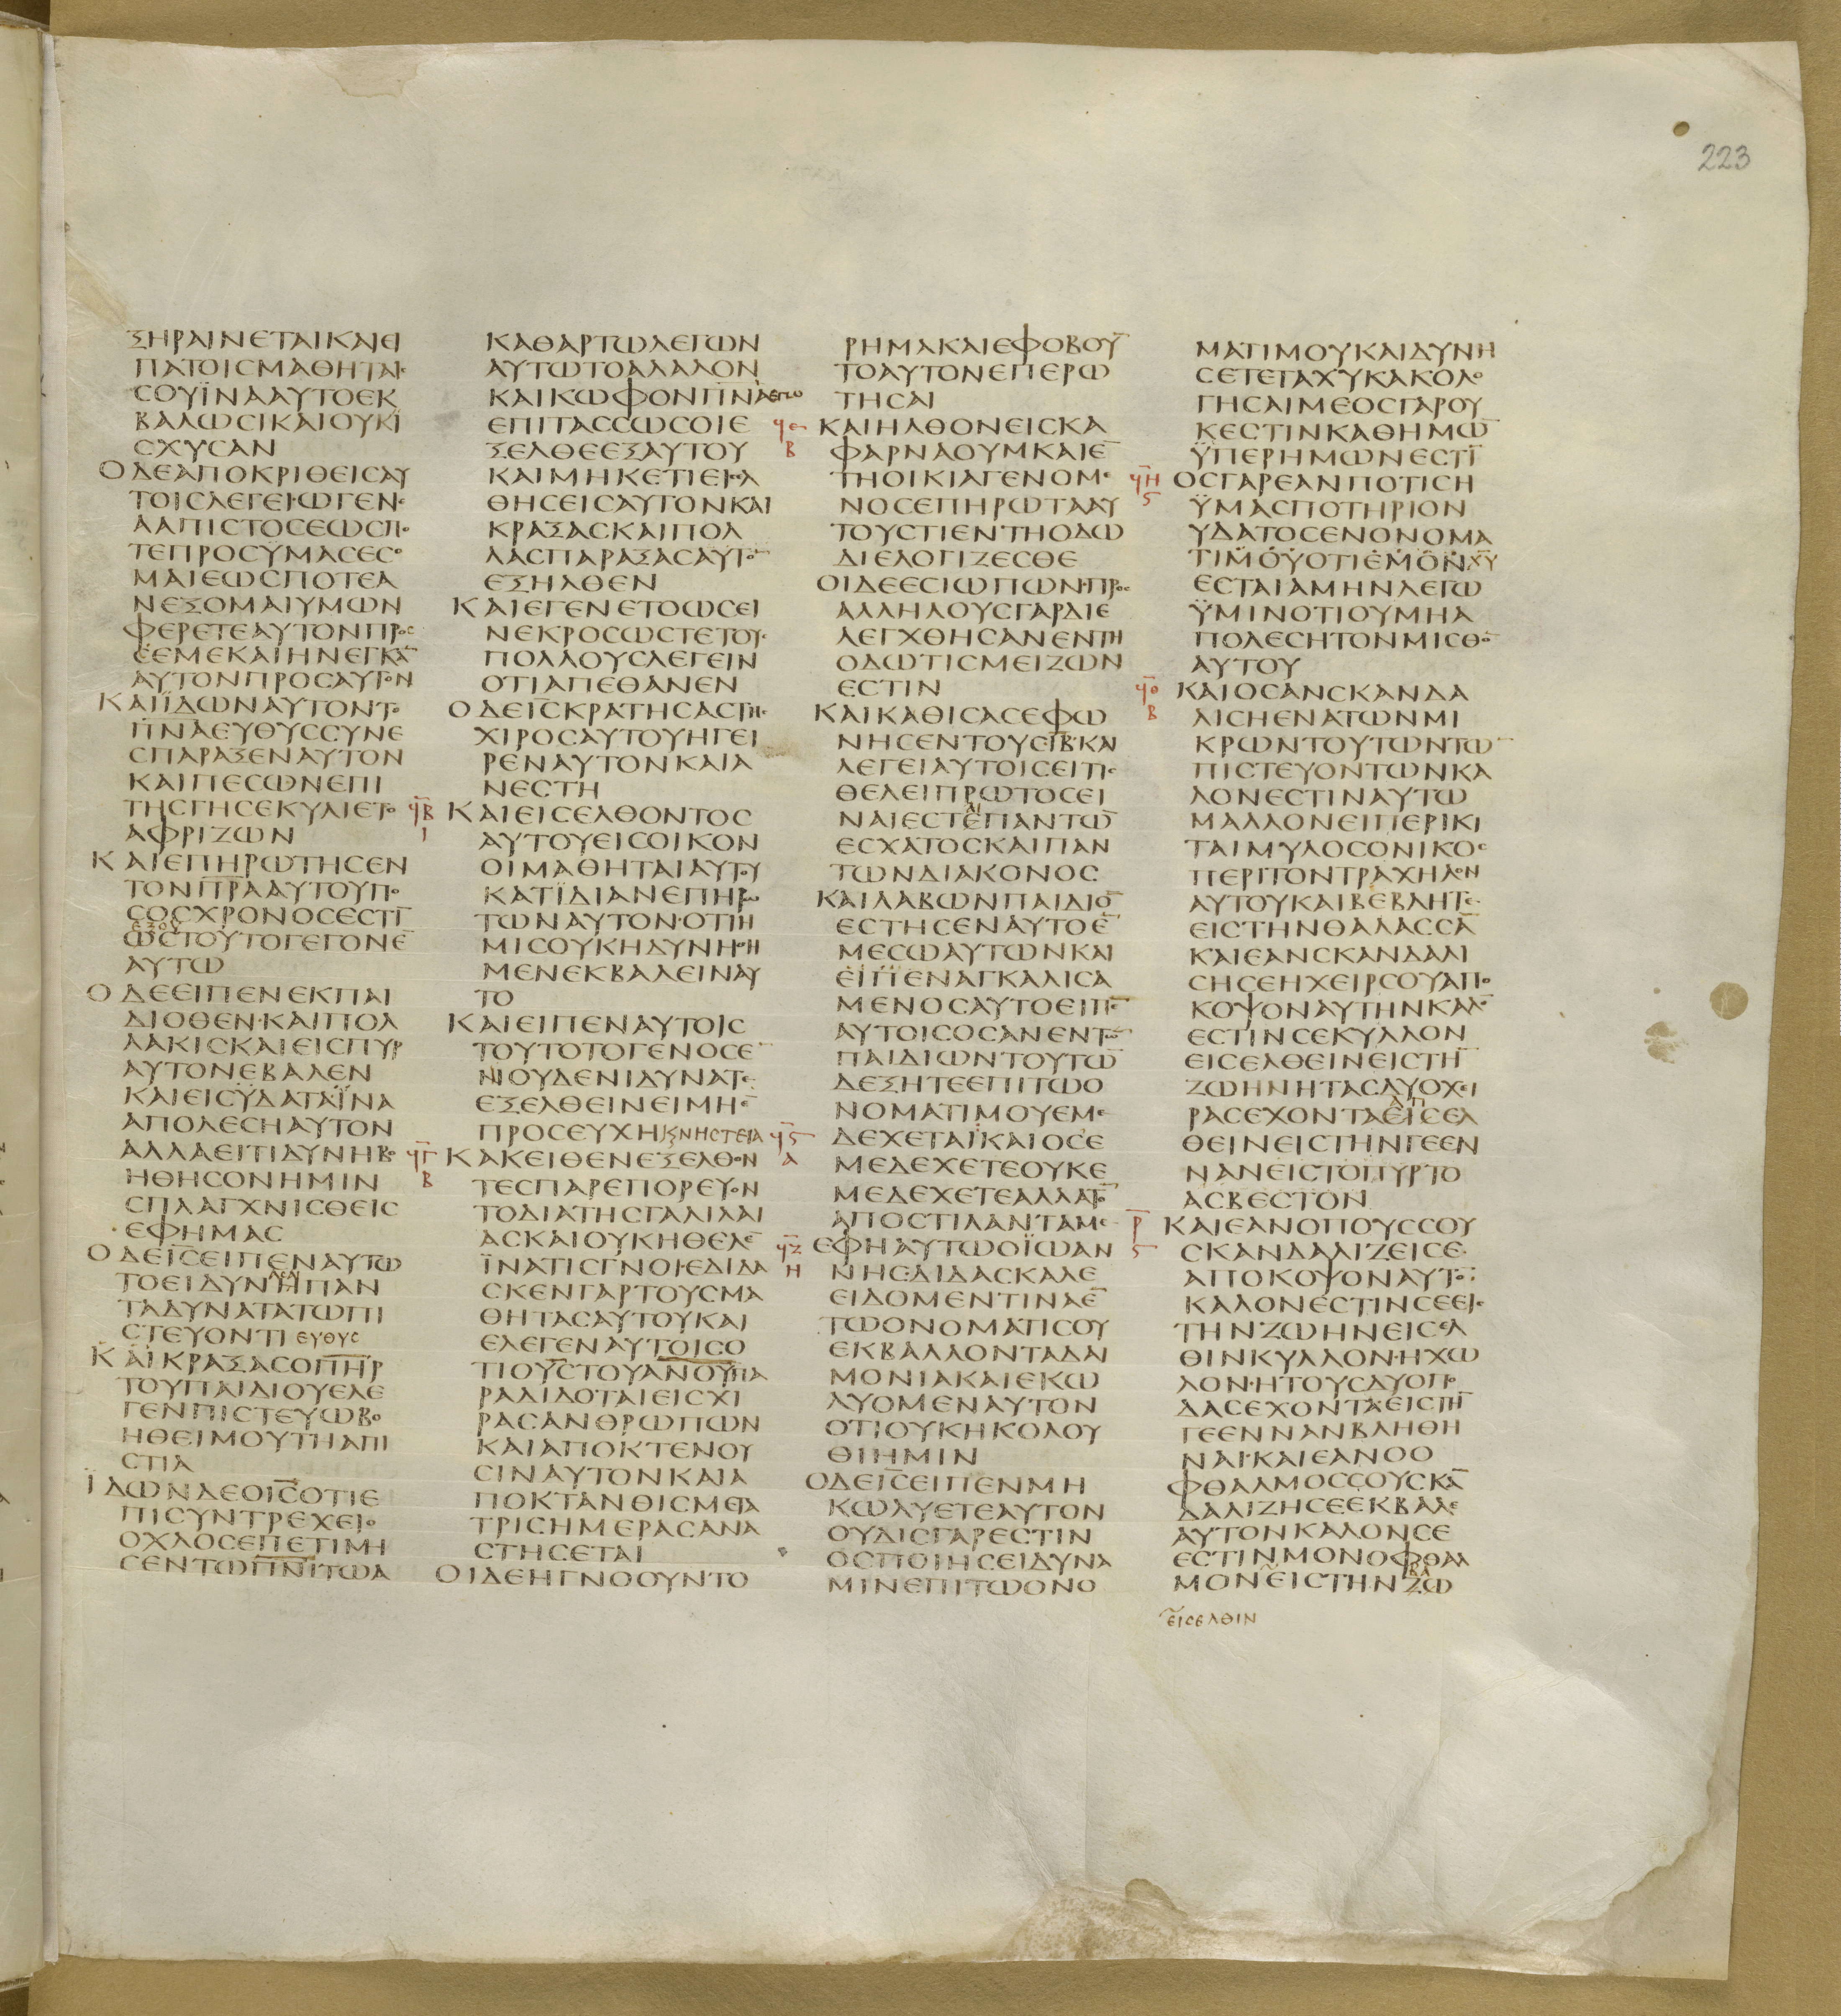 223
ΞΗΡΑΙΝΕΤΑΙΚΑΙΕΙ
ΠΑΤΟΙϹΜΑΘΗΤΑΙ
ϹΟΥΪΝΑΑΥΤΟΕΚ
ΒΑΛΩϹΙΚΑΙΟΥΚΙ̅
ϹΧΥϹΑΝ
ΟΔΕΑΠΟΚΡΙΘΕΙϹΑΥ
ΤΟΙϹΛΕΓΕΙ·ΩΓΕΝΕ
ΑΑΠΙϹΤΟϹΕΩϹΠΟ
ΤΕΠΡΟϹΫΜΑϹΕϹΟ
ΜΑΙΕΩϹΠΟΤΕΑ
ΝΕΞΟΜΑΙΥΜΩΝ
ΦΕΡΕΤΕΑΥΤΟΝΠΡΟϹ
ΕΕΜΕΚΑΙΗΝΕΓΚΑ̅
ΑΥΤΟΝΠΡΟϹΑΥΤΟΝ
ΚΑΙΪΔΩΝΑΥΤΟΝΤΟ
Π̅Ν̅Α̅ΕΥΘΥϹϹΥΝΕ
ϹΠΑΡΑΞΕΝΑΥΤΟΝ
ΚΑΙΠΕϹΩΝΕΠΙ
ΤΗϹΓΗϹΕΚΥΛΙΕΤΟ
ΑΦΡΙΖΩΝ
ΚΑΙΕΠΗΡΩΤΗϹΕΝ
ΤΟΝΠ̅Ρ̅Α̅ΑΥΤΟΥΠΟ
ϹΟϹΧΡΟΝΟϹΕϹΤΙ̅
ΕΞΟΥ
ΩϹΤΟΥΤΟΓΕΓΟΝΕ̅
ΑΥΤΩ
ΟΔΕΕΙΠΕΝΕΚΠΑΙ
ΔΙΟΘΕΝ·ΚΑΙΠΟΛ
ΛΑΚΙϹΚΑΙΕΙϹΠΥΡ
ΑΥΤΟΝΕΒΑΛΕΝ
ΚΑΙΕΙϹΫΔΑΤΑΪΝΑ
ΑΠΟΛΕϹΗΑΥΤΟΝ
ΑΛΛΑΕΙΤΙΔΥΝΗΒΟ
ΗΘΗϹΟΝΗΜΙΝ
ϹΠΛΑΓΧΝΙϹΘΕΙϹ
ΕΦΗΜΑϹ
ΟΔΕΙ̅Ϲ̅ΕΙΠΕΝΑΥΤΩ
ΤΟΕΙΔΥΝΗΠΑΝ
ΤΑΔΥΝΑΤΑΤΩΠΙ
ϹΤΕΥΟΝΤΙ ΕΥΘΥϹ
ΚΑΙΚΡΑΞΑϹΟΠ̅Η̅Ρ̅
ΤΟΥΠΑΙΔΙΟΥΕΛΕ
ΓΕΝΠΙϹΤΕΥΩΒΟ
ΗΘΕΙΜΟΥΤΗΑΠΙ
ϹΤΙΑ
ΪΔΩΝΔΕΟΙ̅Ϲ̅ΟΤΙΕ
ΠΙϹΥΝΤΡΕΧΕΙΟ
ΟΧΛΟϹΕΠΕΤΙΜΗ
ϹΕΝΤΩΠ̅Ν̅Ι̅ΤΩΑ
ΚΑΘΑΡΤΩΛΕΓΩΝ
ΑΥΤΩΤΟΑΛΑΛΟΝ
ΚΑΙΚΩΦΟΝΠ̅Ν̅Α̅ΕΓΩ
ΕΠΙΤΑϹϹΩϹΟΙΕ
ΞΕΛΘΕΕΞΑΥΤΟΥ
ΚΑΙΜΗΚΕΤΙΕΙϹΕΛ
ΘΗϹΕΙϹΑΥΤΟΝΚΑΙ
ΚΡΑΞΑϹΚΑΙΠΟΛ
ΛΑϹΠΑΡΑΞΑϹΑΥΤΟ̅
ΕΞΗΛΘΕΝ
ΚΑΙΕΓΕΝΕΤΟΩϹΕΙ
ΝΕΚΡΟϹΩϹΤΕΤΟΥϹ
ΠΟΛΛΟΥϹΛΕΓΕΙΝ
ΟΤΙΑΠΕΘΑΝΕΝ
ΟΔΕΙ̅Ϲ̅ΚΡΑΤΗϹΑϹΤΗϹ
ΧΙΡΟϹΑΥΤΟΥΗΓΕΙ
ΡΕΝΑΥΤΟΝΚΑΙΑ
ΝΕϹΤΗ
ϤΒ
Ι
ΚΑΙΕΙϹΕΛΘΟΝΤΟϹ
ΑΥΤΟΥΕΙϹΟΙΚΟΝ
ΟΙΜΑΘΗΤΑΙΑΥΤΟΥ
ΚΑΤΪΔΙΑΝΕΠΗΡΩ
ΤΩΝΑΥΤΟΝ·ΟΤΙΗ
ΜΙϹΟΥΚΗΔΥΝΗΘΗ
ΜΕΝΕΚΒΑΛΕΙΝΑΥ
ΤΟ
ΚΑΙΕΙΠΕΝΑΥΤΟΙϹ
ΤΟΥΤΟΤΟΓΕΝΟϹΕ̅
ΟΥΔΕΝΙΔΥΝΑΤΕ
ΕΞΕΛΘΕΙΝΕΙΜΗΕ̅
ΠΡΟϹΕΥΧΗΚϚΝΗϹΤΕΙΑ
ϤΓ
Β
ΚΑΚΕΙΘΕΝΕΞΕΛΘΟΝ
ΤΕϹΠΑΡΕΠΟΡΕΥΟΝ
ΤΟΔΙΑΤΗϹΓΑΛΙΛΑΙ
ΑϹΚΑΙΟΥΚΗΘΕΛΕ̅
ΪΝΑΤΙϹΓΝΟΙ·ΕΔΙΔΑ
ϹΚΕΝΓΑΡΤΟΥϹΜΑ
ΘΗΤΑϹΑΥΤΟΥΚΑΙ
ΕΛΕΓΕΝΑΥΤΟΙϹΟ
ΤΙΟΥ̅Ϲ̅ΤΟΥΑ̅Ν̅Ο̅Υ̅ΠΑ
ΡΑΔΙΔΟΤΑΙΕΙϹΧΙ
ΡΑϹΑΝΘΡΩΠΩΝ
ΚΑΙΑΠΟΚΤΕΝΟΥ
ϹΙΝΑΥΤΟΝΚΑΙΑ
ΠΟΚΤΑΝΘΙϹΜΕΤΑ
ΤΡΙϹΗΜΕΡΑϹΑΝΑ
ϹΤΗϹΕΤΑΙ
ΟΙΔΕΗΓΝΟΟΥΝΤΟ
ΡΗΜΑΚΑΙΕΦΟΒΟΥ̅
ΤΟΑΥΤΟΝΕΠΕΡΩ
ΤΗϹΑΙ
ϤΕ
Β
ΚΑΙΗΛΘΟΝΕΙϹΚΑ
ΦΑΡΝΑΟΥΜΚΑΙΕ̅
ΤΗΟΙΚΙΑΓΕΝΟΜΕ
ΝΟϹΕΠΗΡΩΤΑΑΥ
ΤΟΥϹΤΙΕΝΤΗΟΔΩ
ΔΙΕΛΟΓΙΖΕϹΘΕ
ΟΙΔΕΕϹΙΩΠΩΝ·ΠΡΟϹ
ΑΛΛΗΛΟΥϹΓΑΡΔΙΕ
ΛΕΓΧΘΗϹΑΝΕΝΤΗ
ΟΔΩΤΙϹΜΕΙΖΩΝ
ΕϹΤΙΝ
ΚΑΙΚΑΘΙϹΑϹΕΦΩ
ΝΗϹΕΝΤΟΥϹΙ̅Β̅·ΚΑΙ
ΛΕΓΕΙΑΥΤΟΙϹΕΙΤΙϹ
ΘΕΛΕΙΠΡΩΤΟϹΕΙ
ΑΙ
ΝΑΙΕϹΤΕΠΑΝΤΩ̅
ΕϹΧΑΤΟϹΚΑΙΠΑΝ
ΤΩΝΔΙΑΚΟΝΟϹ
ΚΑΙΛΑΒΩΝΠΑΙΔΙΟ̅
ΕϹΤΗϹΕΝΑΥΤΟΕ̅
ΜΕϹΩΑΥΤΩΝΚΑΙ
ΕΙΠΕΝΑΓΚΑΛΙϹΑ
ΜΕΝΟϹΑΥΤΟΕΙΠΕ̅
ΑΥΤΟΙϹΟϹΑΝΕΝΤΩ̅
ΠΑΙΔΙΩΝΤΟΥΤΩ̅
ΔΕΞΗΤΕΕΠΙΤΩΟ
ΝΟΜΑΤΙΜΟΥΕΜΕ
ϤϚ
Α
ΔΕΧΕΤΑΙΚΑΙΟϹΕ
ΜΕΔΕΧΕΤΕΟΥΚΕ
ΜΕΔΕΧΕΤΕΑΛΛΑΤΟ̅
ΑΠΟϹΤΙΛΑΝΤΑΜΕ
ϤΖ
Η
ΕΦΗΑΥΤΩΟΪΩΑΝ
ΝΗϹ·ΔΙΔΑϹΚΑΛΕ
ΕΙΔΟΜΕΝΤΙΝΑΕ̅
ΤΩΟΝΟΜΑΤΙϹΟΥ
ΕΚΒΑΛΛΟΝΤΑΔΑΙ
ΜΟΝΙΑΚΑΙΕΚΩ
ΛΥΟΜΕΝΑΥΤΟΝ
ΟΤΙΟΥΚΗΚΟΛΟΥ
ΘΙΗΜΙΝ
ΟΔΕΙ̅Ϲ̅ΕΙΠΕΝΜΗ
ΚΩΛΥΕΤΕΑΥΤΟΝ
ΟΥΔΙϹΓΑΡΕϹΤΙΝ
ΟϹΠΟΙΗϹΕΙΔΥΝΑ
ΜΙΝΕΠΙΤΩΟΝΟ
ΜΑΤΙΜΟΥΚΑΙΔΥΝΗ
ϹΕΤΕΤΑΧΥΚΑΚΟΛΟ
ΓΗϹΑΙΜΕΟϹΓΑΡΟΥ
ΚΕϹΤΙΝΚΑΘΗΜΩ̅
ΫΠΕΡΗΜΩΝΕϹΤΙ̅
ϤΗ
Ϛ
ΟϹΓΑΡΕΑΝΠΟΤΙϹΗ
ΫΜΑϹΠΟΤΗΡΙΟΝ
ΥΔΑΤΟϹΕΝΟΝΟΜΑ
ΤΙΜΟΥΟΤΙΕΜΟΝΧ̅Υ̅
ΕϹΤΑΙΑΜΗΝΛΕΓΩ
ΫΜΙΝΟΤΙΟΥΜΗΑ
ΠΟΛΕϹΗΤΟΝΜΙϹΘΟ̅
ΑΥΤΟΥ
ϤΘ
Β
ΚΑΙΟϹΑΝϹΚΑΝΔΑ
ΛΙϹΗΕΝΑΤΩΝΜΙ
ΚΡΩΝΤΟΥΤΩΝΤΩ̅
ΠΙϹΤΕΥΟΝΤΩΝΚΑ
ΛΟΝΕϹΤΙΝΑΥΤΩ
ΜΑΛΛΟΝΕΙΠΕΡΙΚΙ
ΤΑΙΜΥΛΟϹΟΝΙΚΟϹ
ΠΕΡΙΤΟΝΤΡΑΧΗΛΟΝ
ΑΥΤΟΥΚΑΙΒΕΒΛΗΤΕ
ΕΙϹΤΗΝΘΑΛΑϹϹΑ̅
ΚΑΙΕΑΝϹΚΑΝΔΑΛΙ
ϹΗϹΕΗΧΕΙΡϹΟΥΑΠΟ
ΚΟΨΟΝΑΥΤΗΝΚΑΛΟ̅
ΕϹΤΙΝϹΕΚΥΛΛΟΝ
ΕΙϹΕΛΘΕΙΝΕΙϹΤΗ̅
ΖΩΗΝΗΤΑϹΔΥΟΧΕΙ
ΑΠ
ΡΑϹΕΧΟΝΤΑΕΙϹΕΛ
ΘΕΙΝΕΙϹΤΗΝΓΕΕΝ
ΝΑΝΕΙϹΤΟΠΥΡΤΟ
ΑϹΒΕϹΤΟΝ
Ρ
Ϛ
ΚΑΙΕΑΝΟΠΟΥϹϹΟΥ
ϹΚΑΝΔΑΛΙΖΕΙϹΕ
ΑΠΟΚΟΨΟΝΑΥΤΟ̅
ΚΑΛΟΝΕϹΤΙΝϹΕΕΙϹ
ΤΗΝΖΩΗΝΕΙϹΕΛ
ΘΙΝΚΥΛΛΟΝ·ΗΧΩ
ΛΟΝ·ΗΤΟΥϹΔΥΟΠΟ
ΔΑϹΕΧΟΝΤΑΕΙϹΤΗ̅
ΓΕΕΝΝΑΝΒΛΗΘΗ
ΝΑΙ·ΚΑΙΕΑΝΟΟ
ΦΘΑΛΜΟϹϹΟΥϹΚΑ̅
ΔΑΛΙΖΗϹΕΕΚΒΑΛΕ
ΑΥΤΟΝΚΑΛΟΝϹΕ
ΕϹΤΙΝΜΟΝΟΦΘΑΛ
ΜΟΝΕΙϹΤΗΝΖΩ
ΕΙϹΕΛΘΙΝ